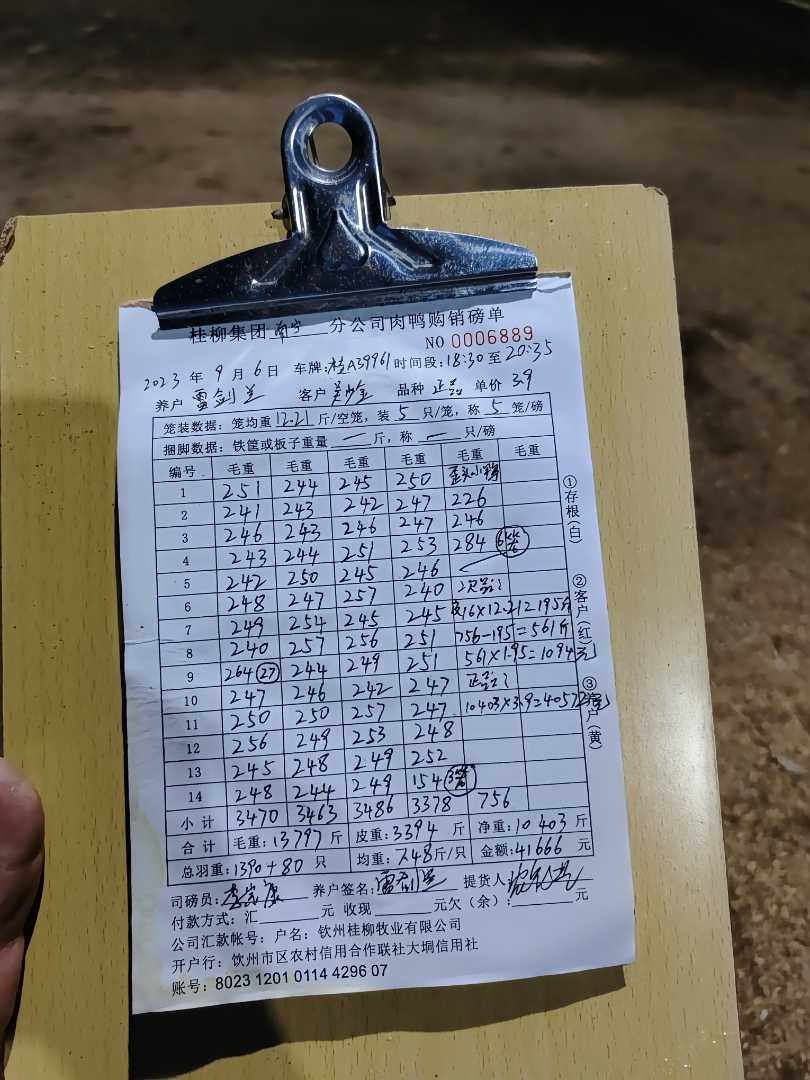 桂柳集团 南宁 分公司肉鸭购销磅单
NO 0006889
2023 年 9 月 6 日 车牌:桂A39961 时间段:18:30 至 20:35
养户 雷剑兰 客户 品种 正品 单价 3.9
笼装数据: 笼均重 12.21 斤/空笼, 装 5 只/笼, 称 5 笼/磅
捆脚数据: 铁筐或板子重量 一 斤, 称 一 只/磅
编号 毛重 毛重 毛重 毛重 毛重 毛重
1 251 244 245 250 歪头小鸭
2 241 243 242 247 226
3 246 243 246 247 246
4 243 244 251 253 284 6
5 242 250 245 246
6 248 247 257 240 次品:
7 249 254 245 245 皮16×12.21=195斤
8 240 257 256 251 756-195=561斤
9 264 27 244 249 251 561×1.95=1094元
10 247 246 242 247 正品:
11 250 250 257 247 10403×3.9=40572元
12 256 249 253 248
13 245 248 249 252
14 248 244 249 154 3
小计 3470 3463 3486 3378 756
合计 毛重:13797 斤 皮重:3394 斤 净重:10403 斤
总羽重:1390+80 只 均重:7.48斤/只 金额:41666 元
司磅员: 养户签名:雷剑兰 提货人:
付款方式:汇 元 收现 元欠(余): 元
公司汇款帐号:户名:钦州桂柳牧业有限公司
开户行:钦州市区农村信用合作联社大垌信用社
账号:8023 1201 0114 4296 07
①存根(白)
②客户(红)
③养户(黄)